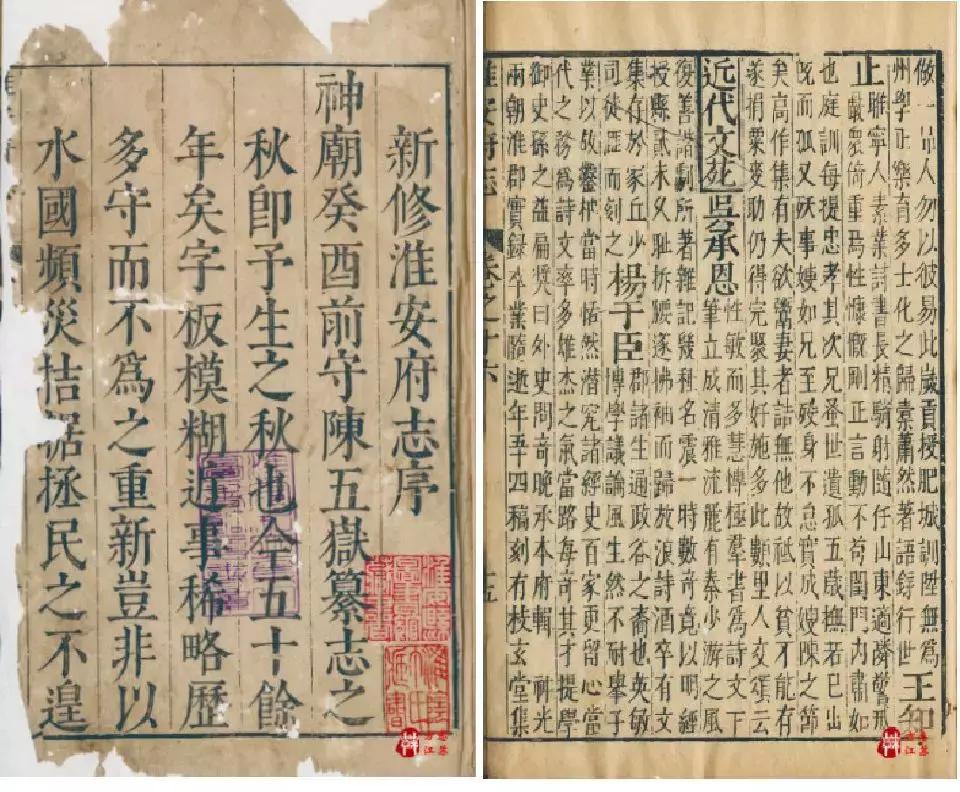 新修淮安府志序
神廟癸酉前守陳五嶽纂志之
秋卽予生之秋也今五十餘
年矣字板模糊近事稀略歷
多守而不為之重新豈非以
水國頻災拮据拯民之不遑
一吊人勿以彼易此歲貢授肥城訓陞無為
州學正樂育多士化之歸橐蕭然著語錚行世王和
止睢寧人素業詩書長精騎射隨任山東適鄰警
嚴眾倚重焉性慷慨剛正言動不苟閨門內肅如
也庭訓每提忠孝其次兄蚤世遺孤五歲撫若已出
旣而孤又殀事嫂如兄至歿身不怠實成嫂陳之節
矣高作集有夫欲鬻妻者詰無他故祇以貧不能存
遂捐粟麥助仍得完聚其好施多此類里人交頌云
近代文苑吳承恩性敏而多慧博極羣書為詩文下
筆立成清雅流麗有秦少游之風
復善諧劇所著雜記幾種名震一時數奇竟以明經
授縣貳未久恥折腰遂拂袖而歸放浪詩酒卒有文
集存於家丘少
司徒匯而刻之楊于臣郡諸生通政谷之裔也英敏
博學議論風生然不耐舉子
業以故鏖神當時恬然潛究諸經史百家更留心當
代之務為詩文率多雄杰之氣當路每奇其才提學
御史孫之益扁獎曰外史問奇晚承本府輯 神光
兩朝淮郡實錄卒業隨逝年五十四稿刻有枝玄堂集
淮安府志
卷之十六
十五